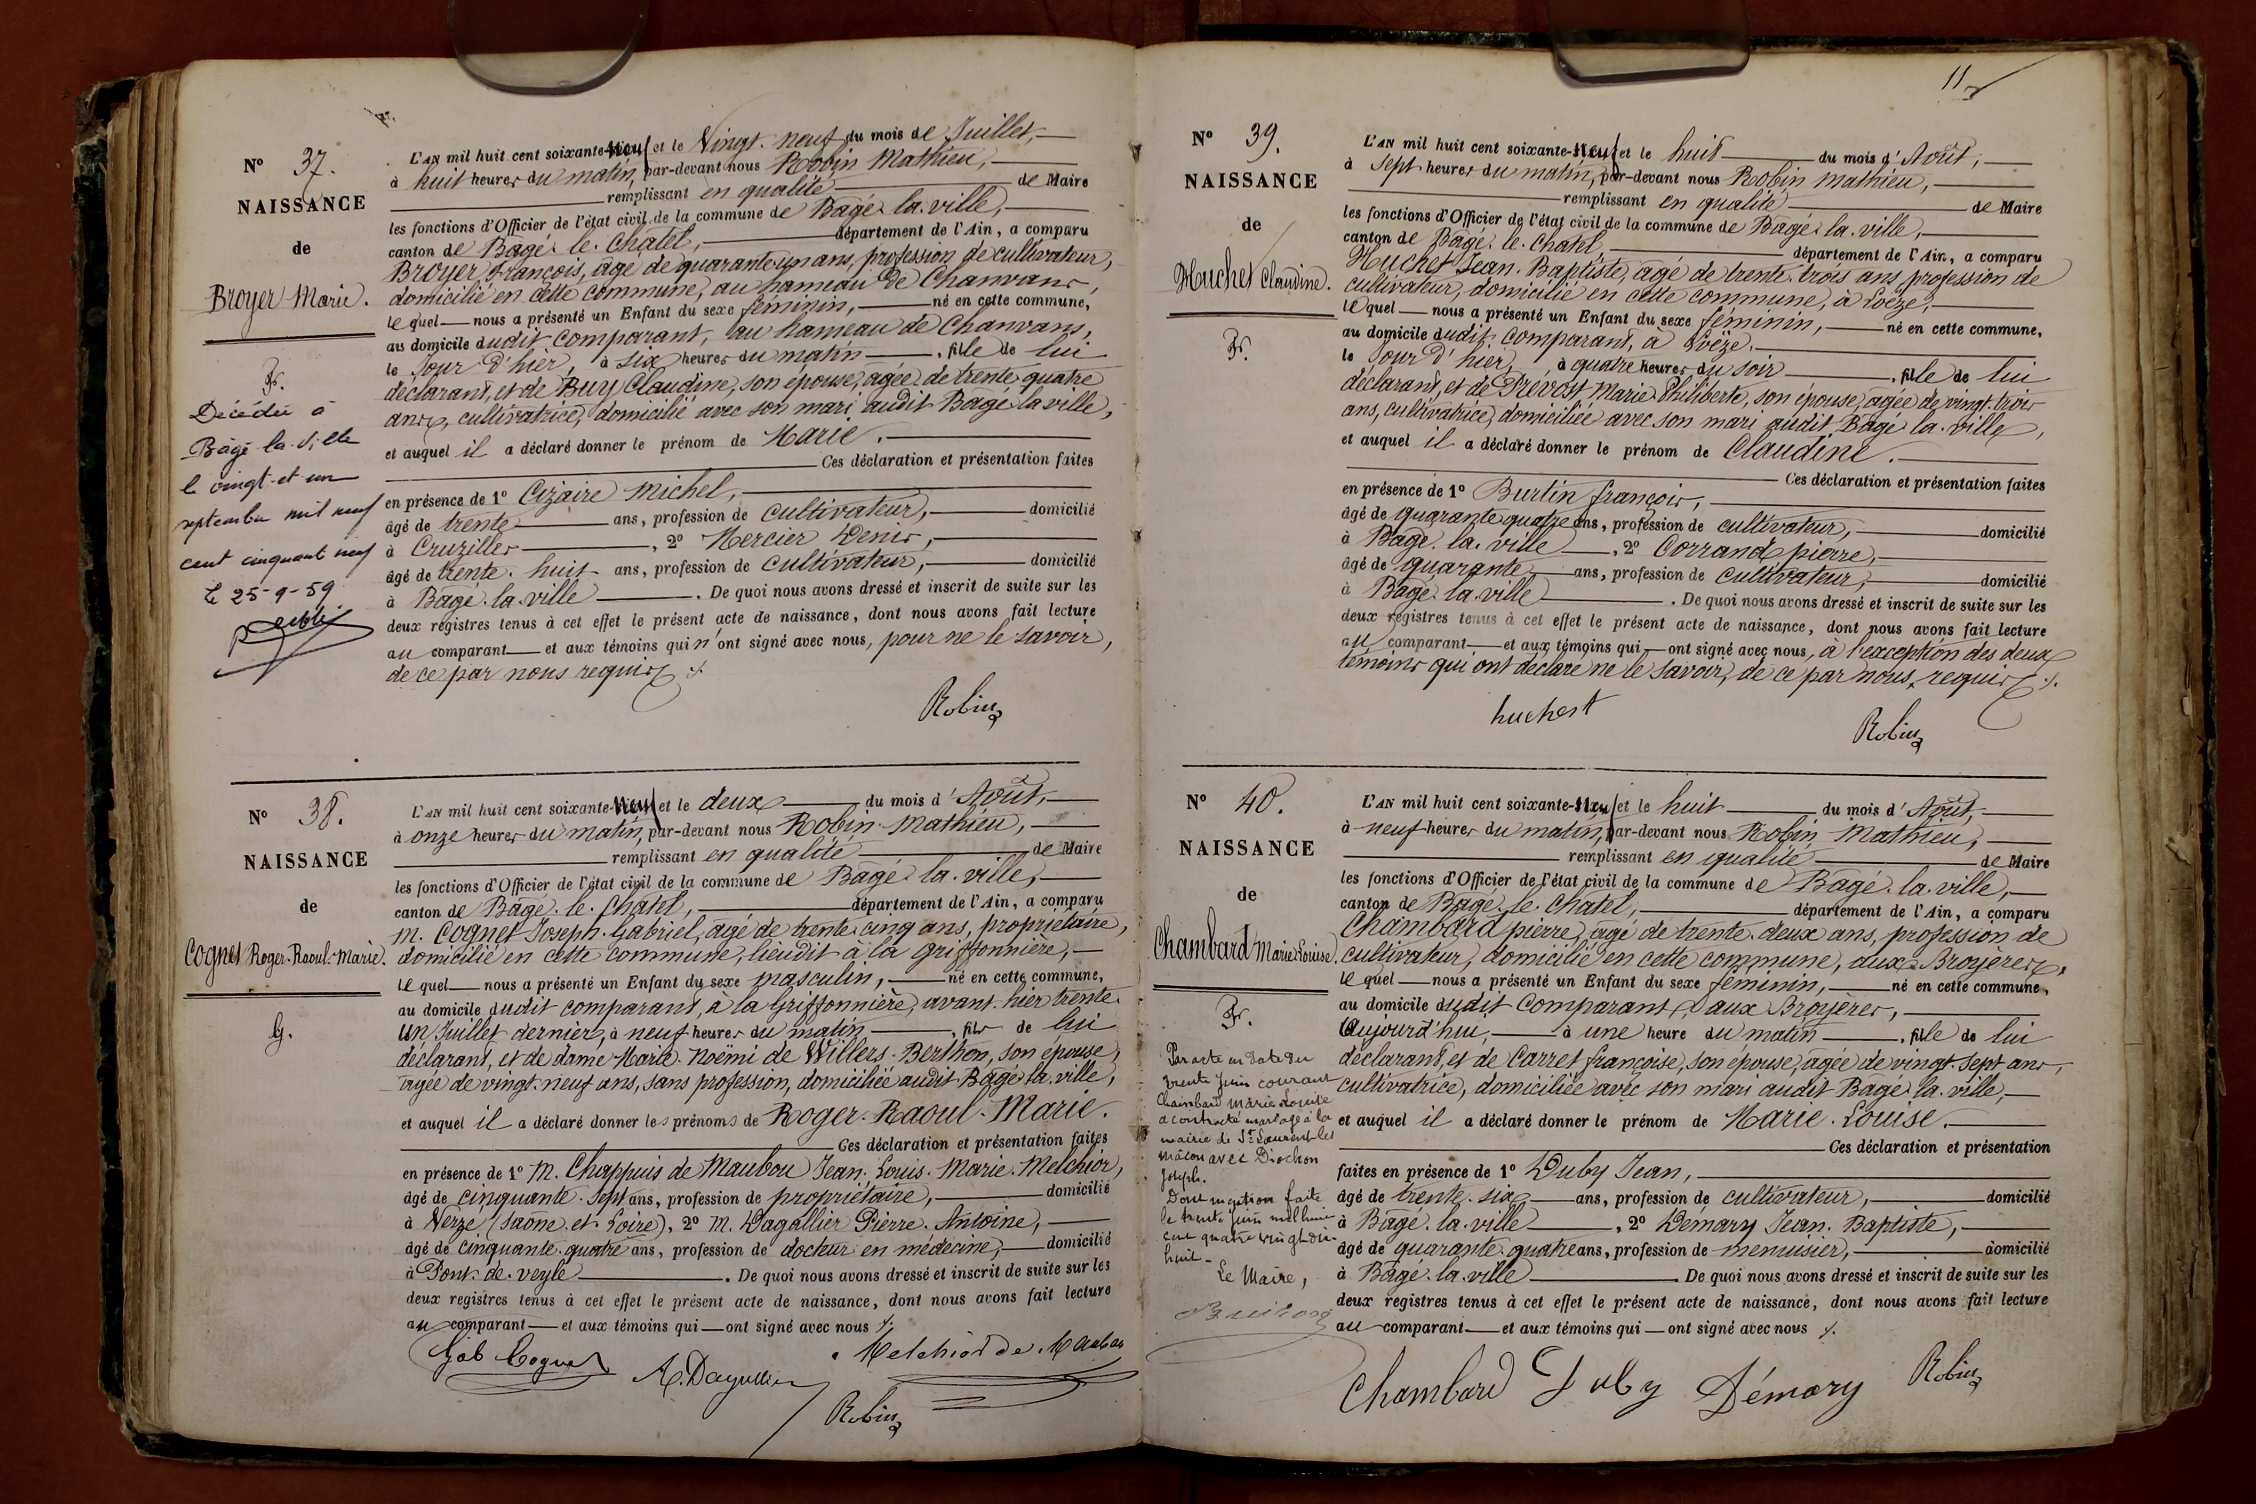 N° 37.
NAISSANCE
de
Broyer Marie.
F.
Décédée à
Bâgé-la-Ville
le vingt-et-un
septembre mil neuf
cent cinquante neuf
Le 25-9-59
L'AN mil huit cent soixante-neuf et le Vingt-neuf du mois de Juillet,
à huit heures du matin, par-devant nous Robin Mathieu,
remplissant en qualité de Maire
les fonctions d'Officier de l'état civil de la commune de Bâgé-la-ville,
canton de Bâgé-le-Châtel, département de l'Ain, a comparu
Broyer françois, âgé de quarante un ans, profession de cultivateur,
domicilié en cette commune, au hameau de Chanvans,
lequel nous a présenté un Enfant du sexe féminin, né en cette commune,
au domicile dudit comparant, au hameau de Chanvans,
le Jour d'hier, à six heures du matin, fille de lui
déclarant, et de Buy Claudine, son épouse, agée de trente quatre
ans, cultivatrice, domicilié avec son mari audit Bagé la ville,
et auquel il a déclaré donner le prénom de Marie.
Ces déclaration et présentation faites
en présence de 1° Cizaire Michel,
âgé de trente ans, profession de cultivateur, domicilié
à Cruzilles, 2° Mercier Denis,
âgé de trente-huit ans, profession de cultivateur, domicilié
à Bâgé-la-ville. De quoi nous avons dressé et inscrit de suite sur les
deux registres tenus à cet effet le présent acte de naissance, dont nous avons fait lecture
au comparant et aux témoins qui n'ont signé avec nous, pour ne le savoir,
de ce par nous requis ./.
Robin
N° 38.
NAISSANCE
de
Cognet Roger-Raoul-Marie.
G.
L'AN mil huit cent soixante-neuf et le deux du mois d'Août,
à onze heures du matin, par-devant nous Robin Mathieu,
remplissant en qualité de Maire
les fonctions d'Officier de l'état civil de la commune de Bâgé-la-ville,
canton de Bâgé-le-Chatel, département de l'Ain, a comparu
M. Cognet Joseph-Gabriel, âgé de trente cinq ans, propriétaire,
domicilié en cette commune, lieudit à la griffonnière,
lequel nous a présenté un Enfant du sexe masculin, né en cette commune,
au domicile dudit comparant, à la Griffonnière, avant-hier trente-
un Juillet dernier, à neuf heures du matin, fils de lui
déclarant, et de dame Marie-Noëmi de Willers-Berthon, son épouse,
agée de vingt-neuf ans, sans profession, domiciliée audit Bâgé-la-ville,
et auquel il a déclaré donner les prénoms de Roger-Raoul-Marie.
Ces déclaration et présentation faites
en présence de 1° M. Chappuis de Maubou Jean-Louis-Marie-Melchior,
âgé de cinquante-sept ans, profession de propriétaire, domicilié
à Verzé (Saône-et-Loire), 2° M. Dagallier Pierre-Antoine,
âgé de cinquante-quatre ans, profession de docteur en médecine, domicilié
à Pont-de-veyle. De quoi nous avons dressé et inscrit de suite sur les
deux registres tenus à cet effet le présent acte de naissance, dont nous avons fait lecture
au comparant et aux témoins qui ont signé avec nous ./.
Gab Cognet
A. Dagallier
Melchior de Maubou
Robin
11
N° 39.
NAISSANCE
de
Huchet Claudine.
F.
L'AN mil huit cent soixante-neuf et le huit du mois d'Août,
à sept heures du matin, par-devant nous Robin Mathieu,
remplissant en qualité de Maire
les fonctions d'Officier de l'état civil de la commune de Bâgé-la-ville,
canton de Bâgé-le-Chatel département de l'Ain, a comparu
Huchet Jean-Baptiste, âgé de trente-trois ans, profession de
cultivateur, domicilié en cette commune, à Loëze,
lequel nous a présenté un Enfant du sexe féminin, né en cette commune,
au domicile dudit comparant, à Loëze.
le Jour d'hier, à quatre heures du soir, fille de lui
déclarant, et de Prevost Marie Philiberte, son épouse, agée de vingt-trois
ans, cultivatrice, domiciliée avec son mari audit Bâgé-la-ville,
et auquel il a déclaré donner le prénom de Claudine.
Ces déclaration et présentation faites
en présence de 1° Burtin françois,
âgé de quarante quatre ans, profession de cultivateur, domicilié
à Bâgé-la-ville, 2° Corrand pierre,
âgé de quarante ans, profession de cultivateur, domicilié
à Bâgé-la-ville. De quoi nous avons dressé et inscrit de suite sur les
deux registres tenus à cet effet le présent acte de naissance, dont nous avons fait lecture
au comparant et aux témoins qui ont signé avec nous, à l'exception des deux
témoins qui ont déclaré ne le savoir, de ce par nous requis ./.
huchet
Robin
N° 40.
NAISSANCE
de
Chambard Marie Louise.
F.
Par acte en date du
trente Juin courant
Chambard Marie Louise
a contracté mariage à la
mairie de St Laurent-les
Mâcon avec Drochon
Joseph.
Dont mention faite
le trente juin mil huit
cent quatre vingt dix
huit -
Le Maire,
L'AN mil huit cent soixante-neuf et le huit du mois d'Août,
à neuf heures du matin, par-devant nous Robin Mathieu,
remplissant en qualité de Maire
les fonctions d'Officier de l'état civil de la commune de Bâgé-la-ville,
canton de Bâgé-le-Chatel, département de l'Ain, a comparu
Chambard pierre, âgé de trente-deux ans, profession de
cultivateur, domicilié en cette commune, aux Broyères,
lequel nous a présenté un Enfant du sexe féminin, né en cette commune,
au domicile dudit comparant, aux Broyères,
aujourd'hui, à une heure du matin, fille de lui
déclarant, et de Carret françoise, son épouse, agée de vingt-sept ans,
cultivatrice, domiciliée avec son mari audit Bagé-la-ville,
et auquel il a déclaré donner le prénom de Marie-Louise.
Ces déclaration et présentation
faites en présence de 1° Duby Jean,
âgé de trente-six ans, profession de cultivateur, domicilié
à Bâgé-la-ville, 2° Démary Jean-Baptiste,
âgé de quarante-quatre ans, profession de menuisier, domicilié
à Bâgé-la-ville. De quoi nous avons dressé et inscrit de suite sur les
deux registres tenus à cet effet le présent acte de naissance, dont nous avons fait lecture
au comparant et aux témoins qui ont signé avec nous ./.
Chambard Duby Démary
Robin